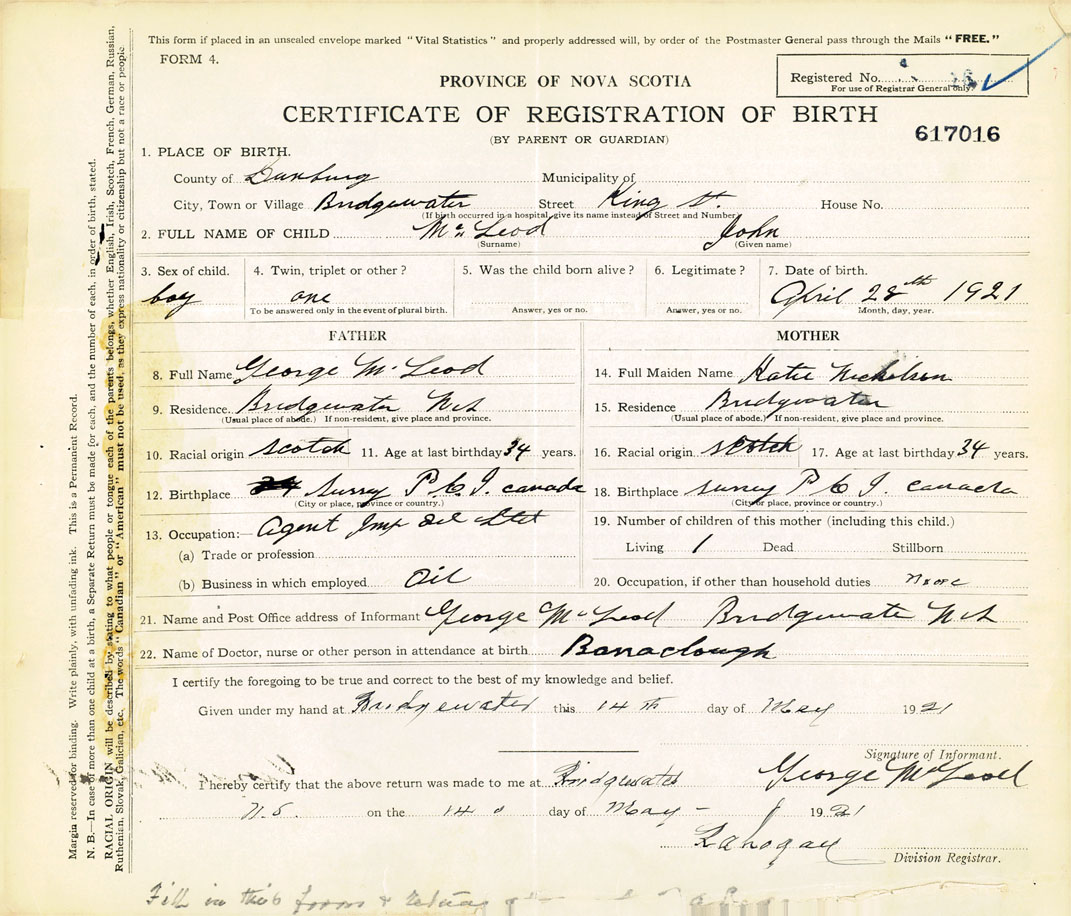 This form if placed in an unsealed envelope marked "Vital Statistics" and properly addressed will, by order of the Postmaster General pass through the Mails "FREE."
FORM 4.
Registered No.
For use of Registrar General only
PROVINCE OF NOVA SCOTIA
CERTIFICATE OF REGISTRATION OF BIRTH
617016
(BY PARENT OR GUARDIAN)
1. PLACE OF BIRTH.
County of Lunburg Municipality of
City, Town or Village Bridgewater Street King St. House No.
(If birth occurred in a hospital, give its name instead of Street and Number)
2. FULL NAME OF CHILD McLeod John
(Surname) (Given name)
3. Sex of child. 4. Twin, triplet or other? 5. Was the child born alive? 6. Legitimate? 7. Date of birth.
boy one April 28th 1921
To be answered only in the event of plural birth. Answer, yes or no. Answer, yes or no. Month, day, year.
FATHER MOTHER
8. Full Name George McLeod 14. Full Maiden Name Katie Nicholson
9. Residence. Bridgewater N.S 15. Residence Bridgewater
(Usual place of abode.) If non-resident, give place and province. (Usual place of abode.) If non-resident, give place and province.
10. Racial origin scotch 11. Age at last birthday 34 years. 16. Racial origin scotch 17. Age at last birthday 34 years.
12. Birthplace Surrey P.E.I. canada 18. Birthplace surrey P E I canada
(City or place, province or country.) (City or place, province or country.)
13. Occupation:— Agent Imp Oil Ltd 19. Number of children of this mother (including this child.)
(a) Trade or profession Living 1 Dead Stillborn
(b) Business in which employed Oil 20. Occupation, if other than household duties
21. Name and Post Office address of Informant George McLeod Bridgewate N.S
22. Name of Doctor, nurse or other person in attendance at birth Barraclough
I certify the foregoing to be true and correct to the best of my knowledge and belief.
Given under my hand at Bridgewater this 14th day of May 1921
Signature of Informant.
I hereby certify that the above return was made to me at Bridgewater George McLeod
N.S. on the 14 day of May 1921
Division Registrar.
Fill in this form & return
Margin reserved for binding. Write plainly, with unfading ink. This is a Permanent Record.
N. B.—In case of more than one child at a birth, a Separate Return must be made for each, and the number of each, in order of birth, stated.
RACIAL ORIGIN will be described by stating to what people or tongue each of the parents belongs, whether English, Irish, Scotch, French, German, Russian,
Ruthenian, Slovak, Galician, etc. The words "Canadian" or "American" must not be used, as they express nationality or citizenship but not a race or people